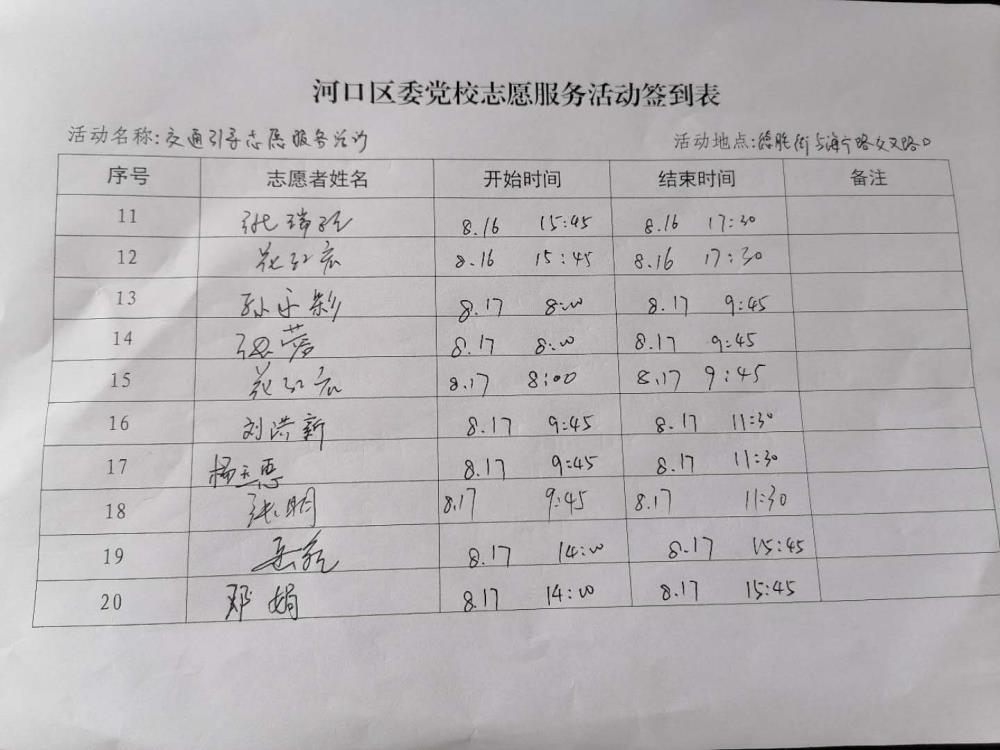 河口区委党校志愿服务活动签到表
活动名称:交通引导志愿服务活动 活动地点:德胜街与海宁路交叉路口
序号 志愿者姓名 开始时间 结束时间 备注
11 张瑞 8.16 15:45 8.16 17:30
12 8.16 15:45 8.16 17:30
13 孙 8.17 8:00 8.17 9:45
14 8.17 8:00 8.17 9:45
15 8.17 8:00 8.17 9:45
16 刘洪新 8.17 9:45 8.17 11:30
17 杨 8.17 9:45 8.17 11:30
18 张明 8.17 9:45 8.17 11:30
19 8.17 14:00 8.17 15:45
20 邓娟 8.17 14:00 8.17 15:45